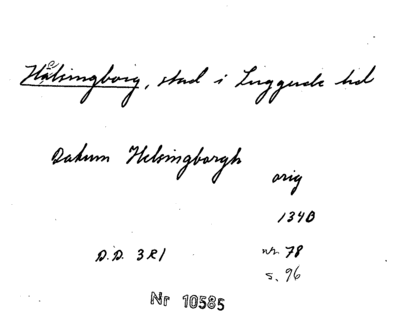 Hälsingborg, stad i Luggude hd
Datum Helsingborgh
orig
1340
D.D. 3 R 1
nr. 78
s. 96
Nr 10585